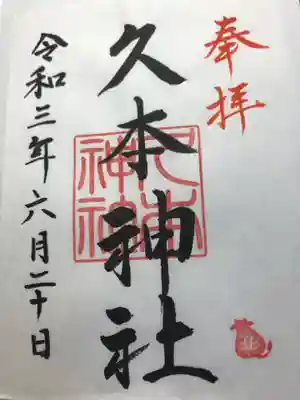 奉拝
久本神社
久本神社
令和三年六月二十日
丑